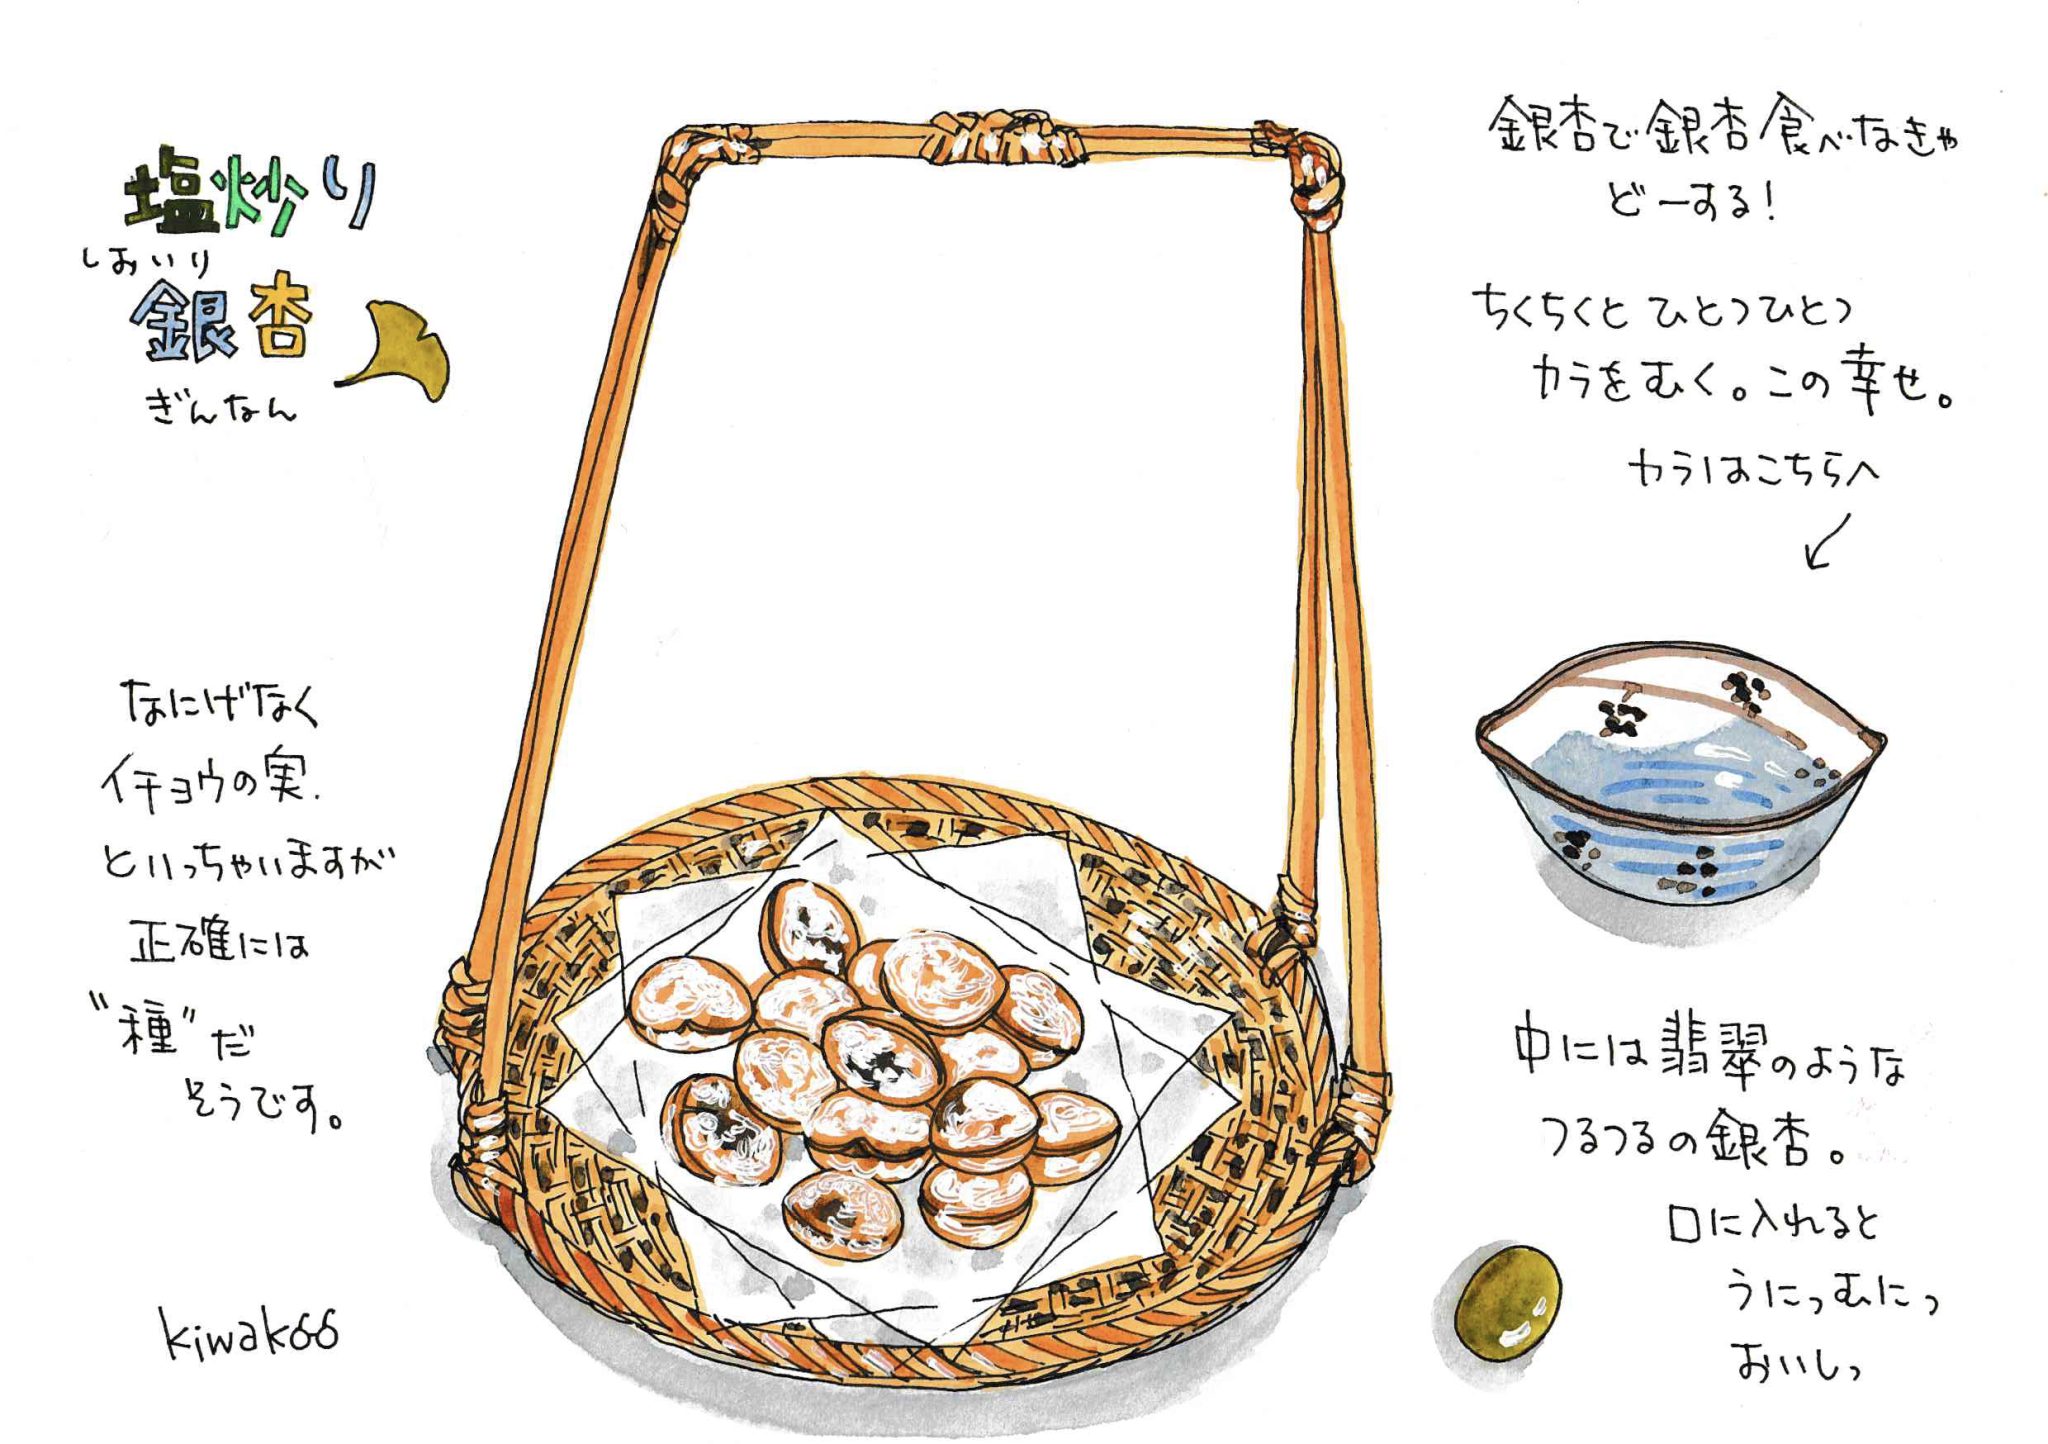 塩炒り
しおいり
銀杏
ぎんなん
なにげなく
イチョウの実.
といっちゃいますが
正確には
“種”だ
そうです。
kiwakoo
銀杏で銀杏食べなきゃ
どーする!
ちくちくと ひとつひとつ
カラをむく。この幸せ。
カラはこちらへ
中には翡翠のような
つるつるの銀杏。
口に入れると
うにっむにっ
おいしっ